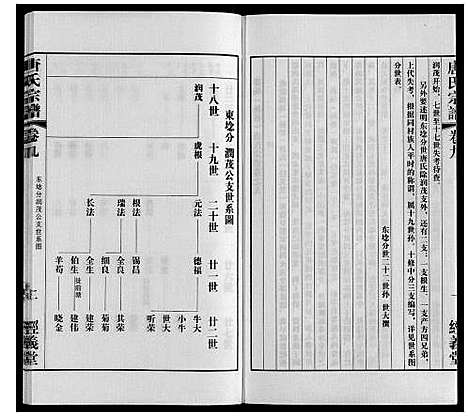 唐氏宗譜
卷九
一
經義堂
润茂开始，七世至十七世失考待查。
另外要述明东埝分世唐氏除润茂支外，还有二支：一支根生，一支产方四兄弟，
上代失考，根据同村族人平时的称谓，属十九世孙，十修中分三支编写，详见世系图
分世表。
东埝分世二十二世孙 世大撰
東埝分 潤茂公支世系圖
十八世 十九世 二十世 廿一世 廿二世
润茂 虎根 元法 德福 牛大
小牛
世大
听荣
根法 锡昌
瑞法 全良 其荣
细良 菊菊
长法 全生 建荣
伯生 建伟
羊荀 晓金
唐氏宗譜
卷九
东埝分润茂公支世系图
二
經義堂